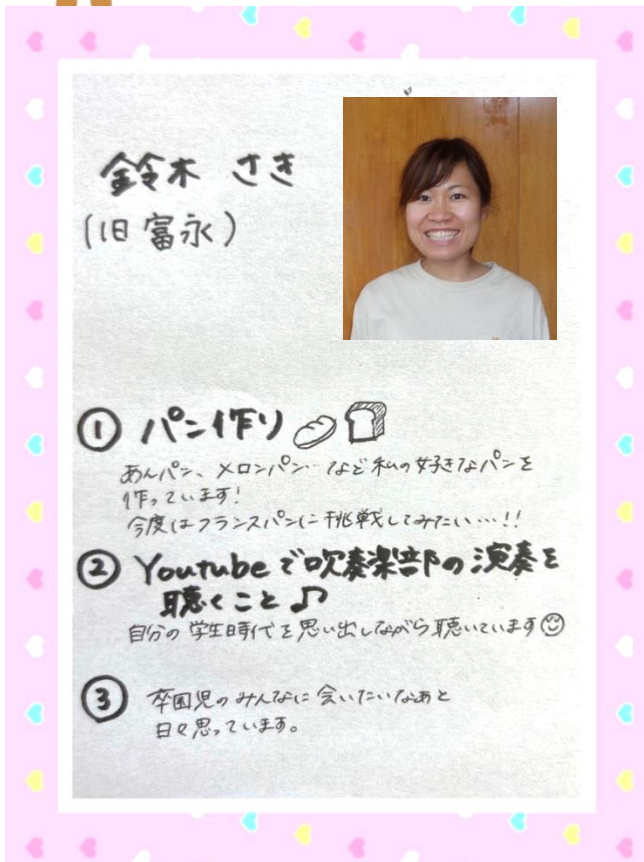 鈴木 さき
(旧 富永)
① パン作り
あんパン、メロンパン…など私の好きなパンを
作っています!
今度はフランスパンに挑戦してみたい…!!
② Youtubeで吹奏楽部の演奏を
聴くこと♪
自分の学生時代を思い出しながら聴いています
③ 卒園児のみんなに会いたいなあと
日々思っています。